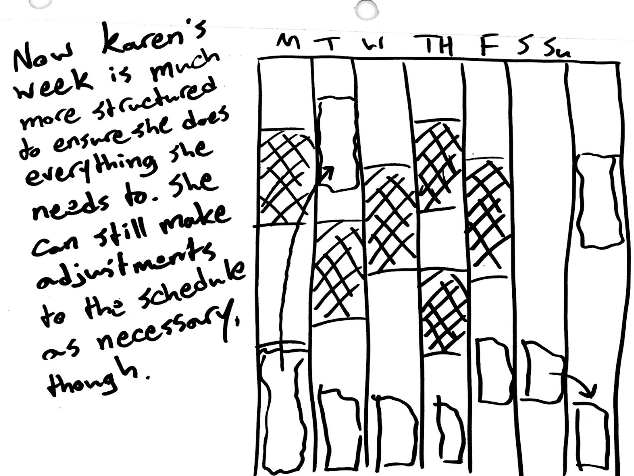 Now Karen's
week is much
more structured
to ensure she does
everything she
needs to. She
can still make
adjustments
to the schedule
as necessary,
though.
M T W TH F S Su